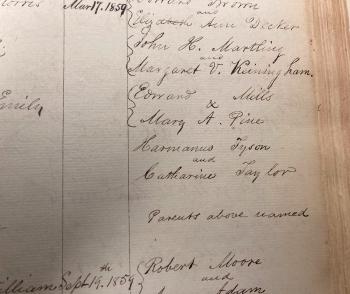 Mar 17. 1859
Brown
and
Elizabeth Ann Decker
John H. Martling
and
Margaret V. Keiningham.
Edward Mills
&
Mary A. Pine
Emily
Hermanus Tyson
and
Catharine Taylor
Parents above named
William Sept 19.th 1859
Robert Moore
and
Adam